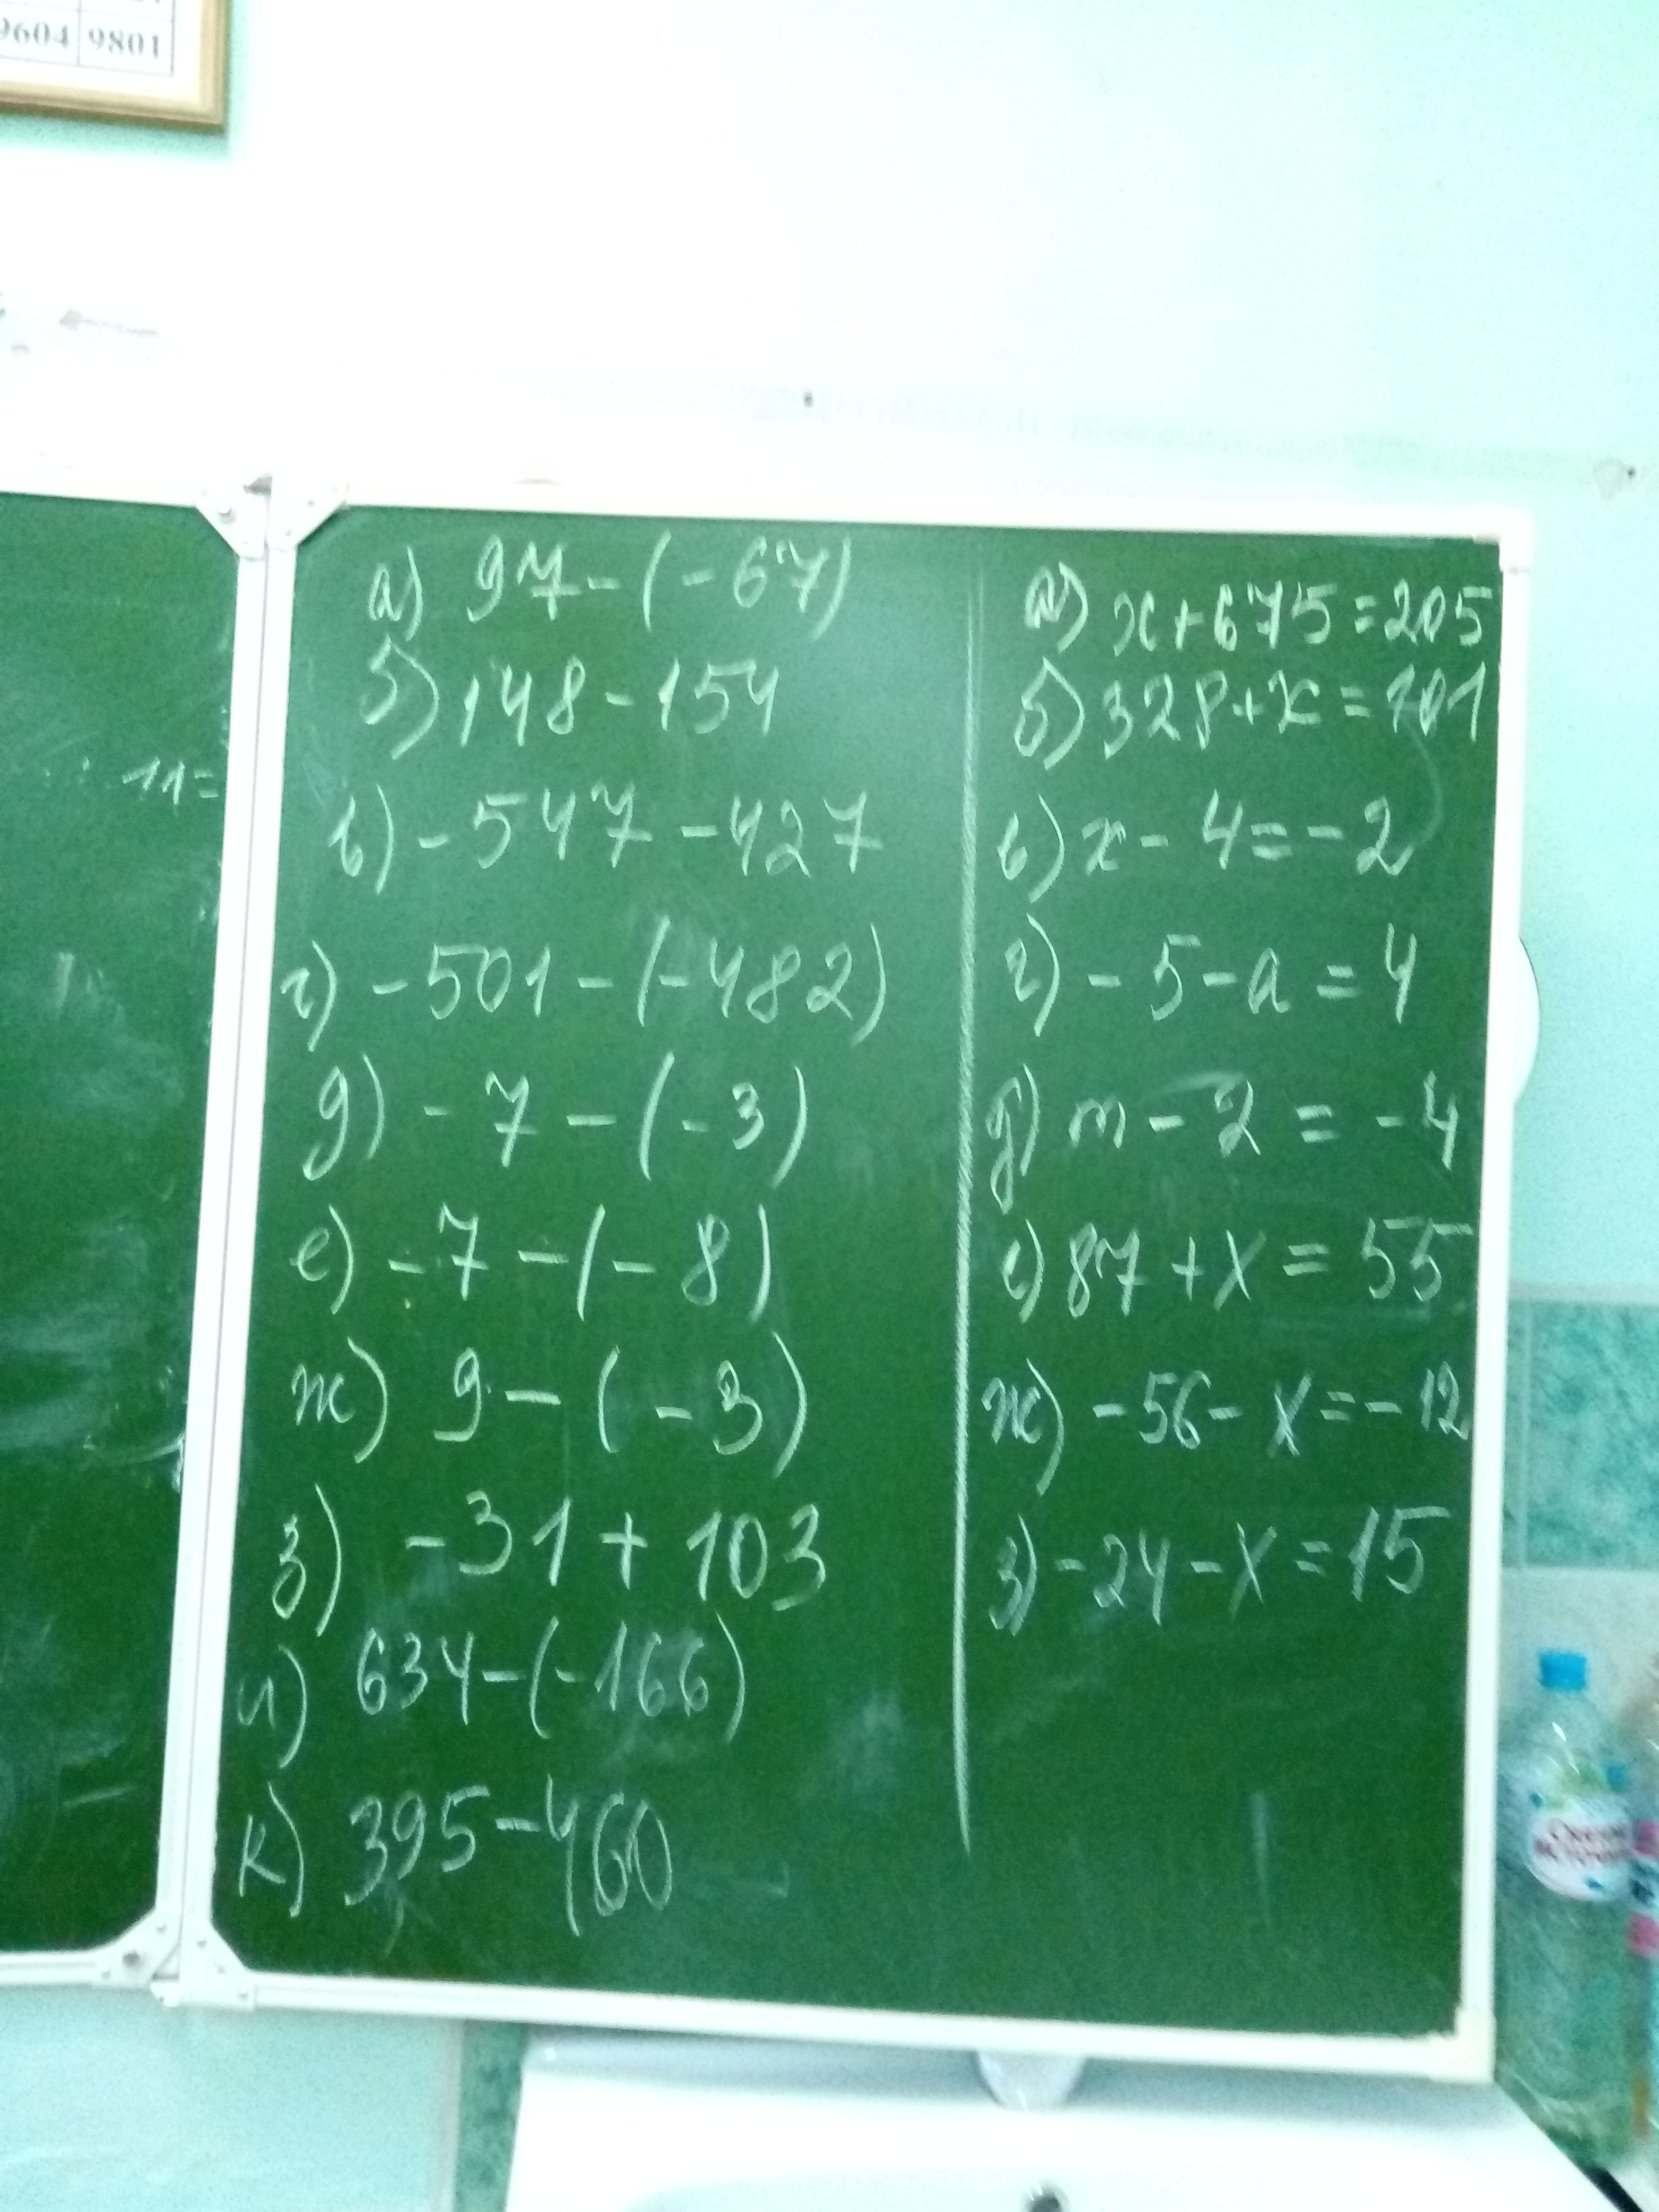 9604 9801
11=
а) 97-(-67)
б) 148-154
в) -547-427
г) -501-(-482)
д) -7-(-3)
е) -7-(-8)
ж) 9-(-3)
з) -31+103
и) 634-(-166)
к) 395-460
а) x+675=205
б) 328+x=101
в) x-4=-2
г) -5-a=4
д) m-2=-4
е) 87+x=55
ж) -56-x=-12
з) -24-x=15